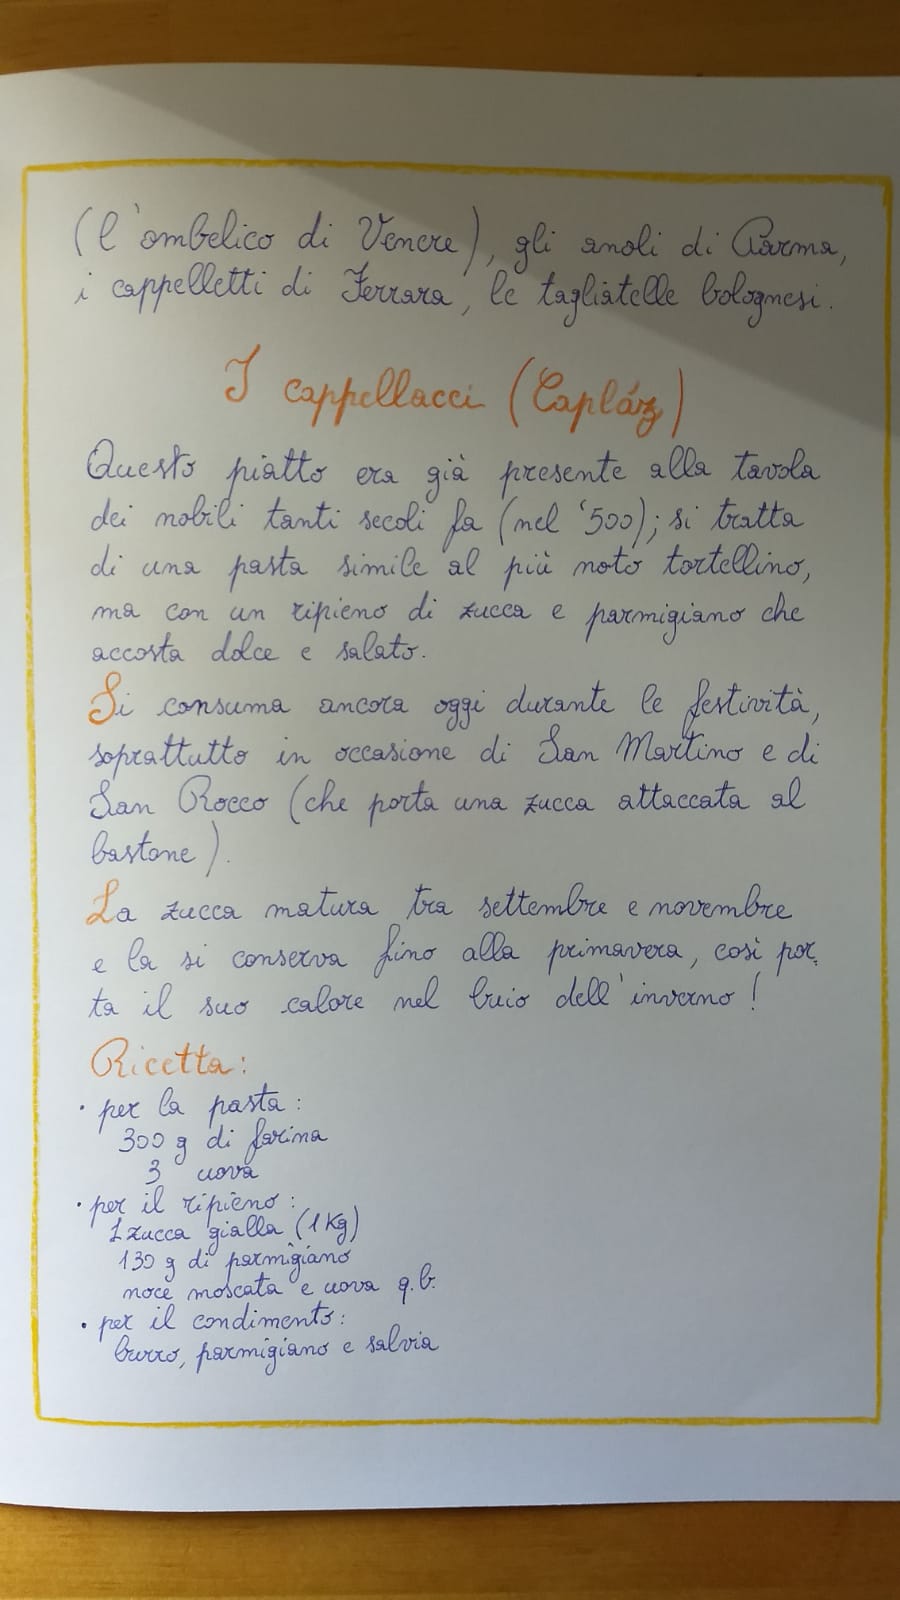 (l'ombelico di Venere), gli anoli di Parma,
i cappelletti di Ferrara, le tagliatelle bolognesi.
I cappellacci (Capláz)
Questo piatto era già presente alla tavola
dei nobili tanti secoli fa (nel '500); si tratta
di una pasta simile al più noto tortellino,
ma con un ripieno di zucca e parmigiano che
accosta dolce e salato.
Si consuma ancora oggi durante le festività,
soprattutto in occasione di San Martino e di
San Rocco (che porta una zucca attaccata al
bastone).
La zucca matura tra settembre e novembre
e la si conserva fino alla primavera, così por-
ta il suo calore nel buio dell'inverno!
Ricetta:
• per la pasta:
300 g di farina
3 uova
• per il ripieno:
1 zucca gialla (1 Kg)
130 g di parmigiano
noce moscata e uova q.b.
• per il condimento:
burro, parmigiano e salvia